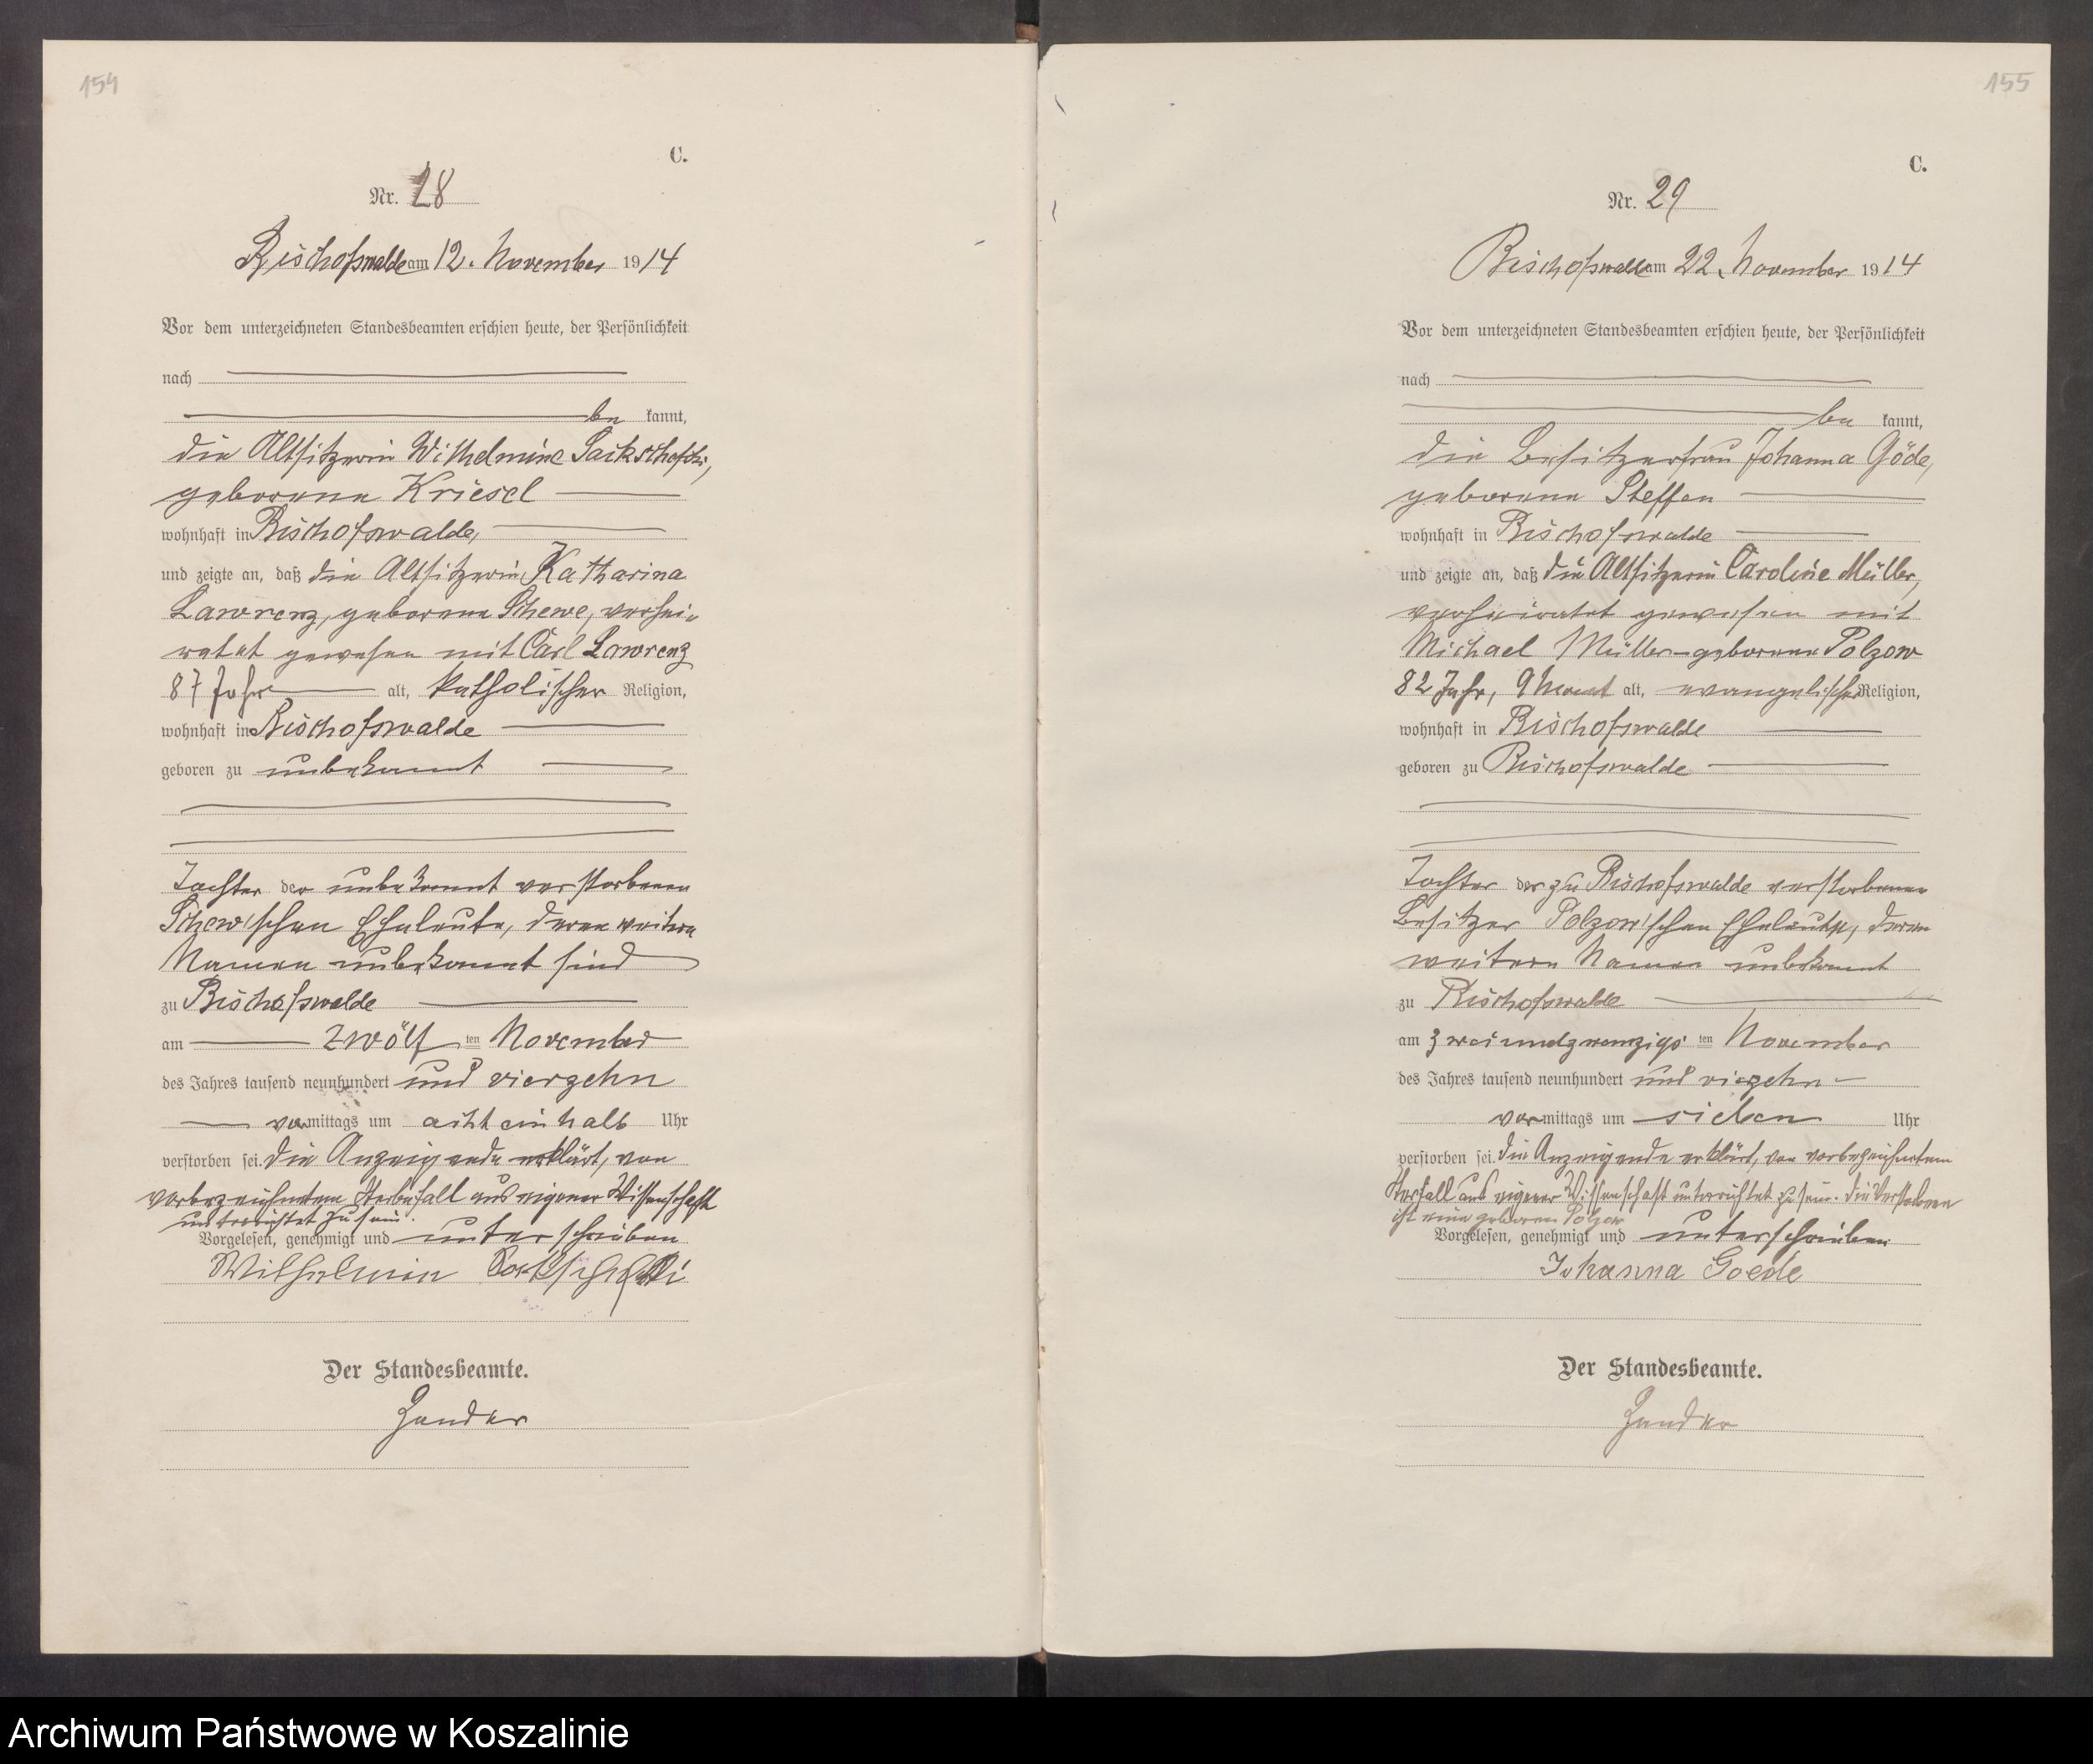 154
C.
Nr. 28
Bischofswalde am 12. November 1914
Vor dem unterzeichneten Standesbeamten erschien heute, der Persönlichkeit
nach
be kannt,
die Altsitzerin Wilhelmine
geborene Kriesel
wohnhaft in Bischofswalde,
und zeigte an, daß die Altsitzerin Katharina
Lawrenz, geborene Schewe, verhei-
ratet gewesen mit Carl Lawrenz
87 Jahre alt, katholischer Religion,
wohnhaft in Bischofswalde
geboren zu unbekannt
Tochter der unbekannt verstorbenen
Schew'schen Eheleute, deren weitere
Namen unbekannt sind
zu Bischofswalde
am zwölf ten November
des Jahres tausend neunhundert und vierzehn
vormittags um acht ein halb Uhr
verstorben sei. Die Anzeigende erklärt, von
vorbezeichnetem Sterbefall aus eigener Wissenschaft
unterrichtet zu sein.
Vorgelesen, genehmigt und unterschrieben
Wilhelmin
Der Standesbeamte.
Zander
155
C.
Nr. 29
Bischofswalde am 22. November 1914
Vor dem unterzeichneten Standesbeamten erschien heute, der Persönlichkeit
nach
be kannt,
die Besitzerfrau Johanna Göde,
geborene Steffen
wohnhaft in Bischofswalde
und zeigte an, daß die Altsitzerin Caroline Müller,
verheiratet gewesen mit
Michael Müller-geborene Polzow
82 Jahr, 9 Monat alt, evangelischer Religion,
wohnhaft in Bischofswalde
geboren zu Bischofswalde
Tochter der zu Bischofswalde verstorbenen
Besitzer Polzow'schen Eheleute, deren
weitere Namen unbekannt
zu Bischofswalde
am zweiundzwanzigs ten November
des Jahres tausend neunhundert und vierzehn
vormittags um sieben Uhr
verstorben sei. Die Anzeigende erklärt, von vorbezeichnetem
Sterfall aus eigener Wissenschaft unterrichtet zu sein. Die Verstorbene
ist eine geborene Polzow
Vorgelesen, genehmigt und unterschrieben
Johanna Goede
Der Standesbeamte.
Zander
Archiwum Państwowe w Koszalinie